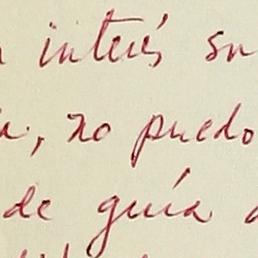 interés su
, no puedo
de guía